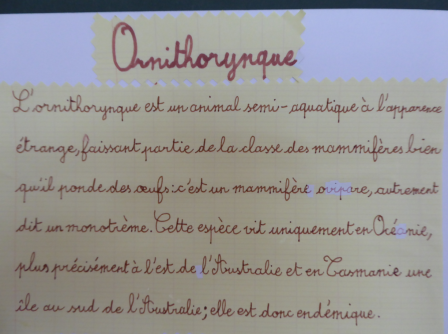 Ornithorynque
L'ornithorynque est un animal semi-aquatique à l'apparence
étrange, faisant partie de la classe des mammifères bien
qu'il ponde des œufs : c'est un mammifère ovipare, autrement
dit un monotrème. Cette espèce vit uniquement en Océanie,
plus précisément à l'est de l'Australie et en Tasmanie une
île au sud de l'Australie ; elle est donc endémique.